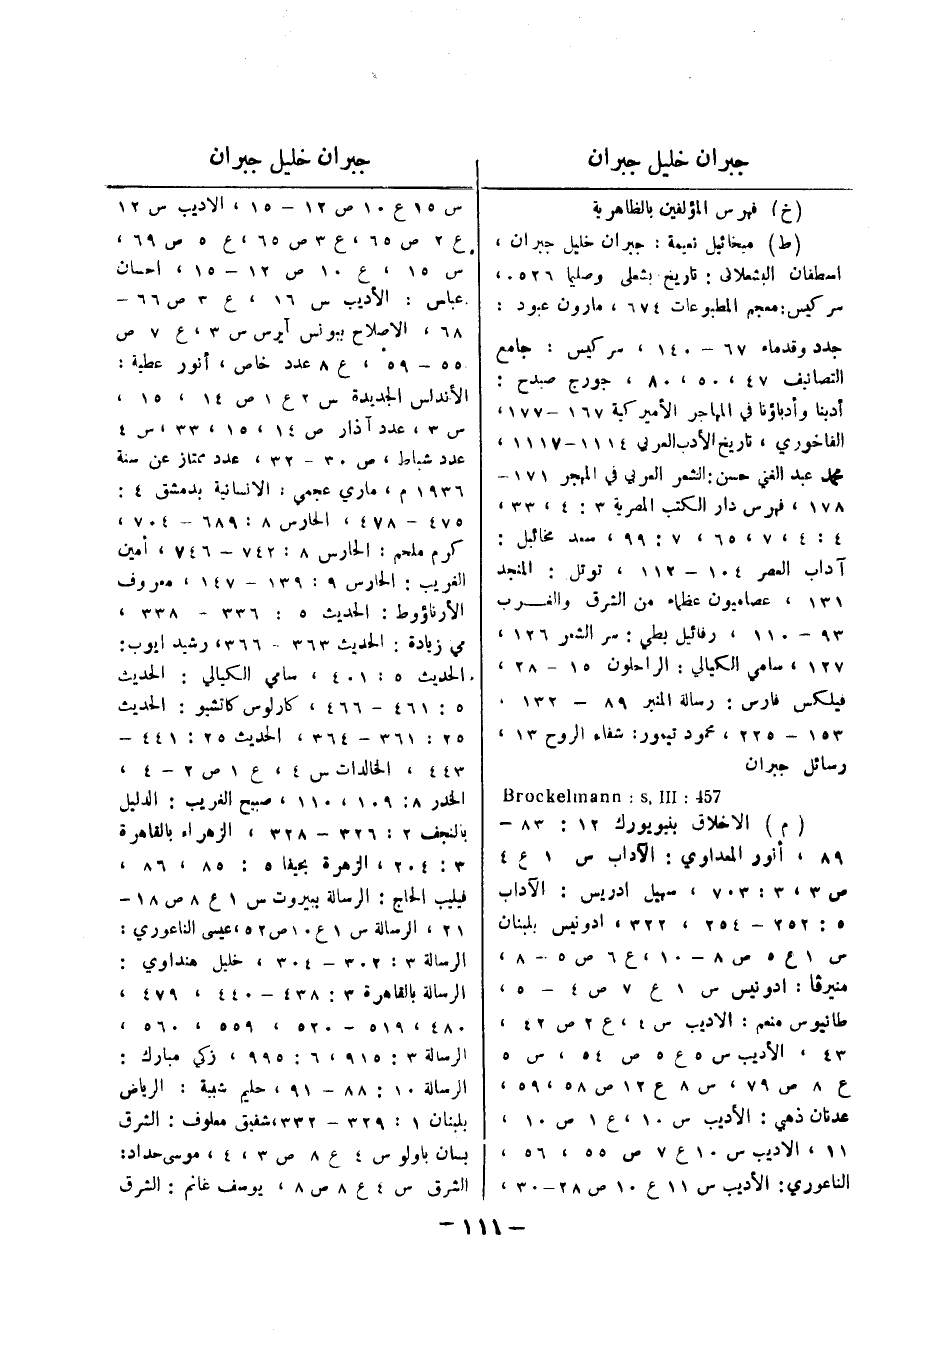 جبران خليل جبران
(خ) فهرس المؤلفين بالظاهرية
(ط) ميخائيل نعيمة : جبران خليل جبران ،
اسطفان البشعلاني : تاريخ بشعلي وصليما ٥٢٦ ،
سركيس : معجم المطبوعات ٦٧٤ ، مارون عبود :
جدد وقدماء ٦٧ – ١٤٠ ، سركيس : جامع
التصانيف ٤٧ ، ٥٠ ، ٨٠ ، جورج صيدح :
أدبنا وأدباؤنا في المهاجر الأميركية ١٦٧ –١٧٧،
الفاخوري ، تاريخ الأدب العربي ١١١٤–١١١٧ ،
محمد عبد الغني حسن : الشعر العربي في المهجر ١٧١ –
١٧٨ ، فهرس دار الكتب المصرية ٣ : ٤ ، ٣٣ ،
٤ : ٤ ، ٧ ، ٦٥ ، ٧ : ٩٩ ، سعد مخائيل :
آداب العصر ١٠٤ – ١١٢ ، توتل : المنجد
١٣١ ، عصاميون عظماء من الشرق والغرب
٩٣ – ١١٠ ، رفائيل بطي : سر الشعر ١٢٦ ،
١٢٧ ، سامي الكيالي : الراحلون ١٥ – ٢٨ ،
فيلكس فارس : رسالة المنبر ٨٩ – ١٣٢ .
١٥٣ – ٢٢٥ ، محمود تيمور: شفاء الروح ١٣ ،
رسائل جبران
Brockelmann : s, III : 457
(م) الاخلاق بنيويورك ١٢ : ٨٣ –
٨٩ ، أنور المعداوي : الآداب س ١ ع ٤
ص ٣ ، ٣ : ٧٠٣ ، سهيل ادريس : الآداب
٥ : ٢٥٢ – ٢٥٤ ، ٣٢٢ ، ادونيس بلبنان
س ١ ع ٥ ص ٨ – ١٠ ، ع ٦ ص ٥ – ٨ ،
منيرڤا : ادونيس س ١ ع ٧ ص ٤ – ٥ ،
طانيوس منعم : الاديب س ٤ ، ع ٢ ص ٤٢ ،
٤٣ ، الأديب س ٥ ع ٥ ص ٥٤ ، س ٥
ع ٨ ص ٧٩ ، س ٨ ع ١٢ ص ٥٨ ، ٥٩ ،
عدنان ذهبي : الأديب س ١٠ ، ع ١ ص ١٠ ،
١١ ، الاديب س ١٠ ع ٧ ص ٥٥ ، ٥٦ ،
الناعوري : الأديب س ١١ ع ١٠ ص ٢٨ – ٣٠ ،
جبران خليل جبران
س ١٥ ع ١٠ ص ١٢ – ١٥ ، الاديب س ١٢
ع ٢ ص ٦٥ ، ع ٣ ص ٦٥ ، ع ٥ ص ٦٩ ،
س ١٥ ، ع ١٠ ص ١٢ – ١٥ ، احسان
عباس : الأديب س ١٦ ، ع ٣ ص ٦٦ –
٦٨ ، الاصلاح ببونس آيرس س ٣ ، ع ٧ ص
٥٥ – ٥٩ ، ع ٨ عدد خاص ، أنور عطية :
الأندلس الجديدة س ٢ ع ١ ص ١٤ ، ١٥ ،
س ٣ ، عدد آذار ص ١٤ ، ١٥ ، ٣٣ ، س ٤
عدد شباط ، ص ٣٠ – ٣٢ ، عدد ممتاز عن سنة
١٩٣٦ م ، ماري عجمي : الانسانية بدمشق ٤ :
٤٧٥ – ٤٧٨ ، الحارس ٨ : ٦٨٩ – ٧٠٤ ،
كرم ملحم : الحارس ٨ : ٧٤٢ – ٧٤٦ ، أمين
الغريب : الحارس ٩ : ١٣٩ – ١٤٧ ، معروف
الأرناؤوط : الحديث ٥ : ٣٣٦ – ٣٣٨ ،
مي زيادة : الحديث ٣٦٣ – ٣٦٦ ، رشيد ايوب:
الحديث ٥ : ٤٠١ ، سامي الكيالي : الحديث
٥ : ٤٦١ – ٤٦٦ ، كارلوس كاتشيو : الحديث
٢٥ : ٣٦١ – ٣٦٤ ، الحديث ٢٥ : ٤٤١ –
٤٤٣ ، الخالدات س ٤ ، ع ١ ص ٢ – ٤ ،
الخدر ٨ : ١٠٩ ، ١١٠ ، صبيح الغريب : الدليل
بالنجف ٢ : ٣٢٦ – ٣٢٨ ، الزهراء بالقاهرة
٣ : ٢٠٤ ، الزهرة بحيفا ٥ : ٨٥ ، ٨٦ ،
فيليب الحاج : الرسالة ببيروت س ١ ع ٨ ص ١٨ –
٢١ ، الرسالة س ١ ع ١٠ ص ٥٢ ، عيسى الناعوري :
الرسالة ٣ : ٣٠٢ – ٣٠٤ ، خليل هنداوي :
الرسالة بالقاهرة ٣ : ٤٣٨ – ٤٤٠ ، ٤٧٩ ،
٤٨٠ ، ٥١٩ – ٥٢٠ ، ٥٥٩ ، ٥٦٠ ،
الرسالة ٣ : ٩١٥ ، ٦ : ٩٩٥ ، زكي مبارك :
الرسالة ١٠ : ٨٨ – ٩١ ، حليم شبية : الرياض
بلبنان ١ : ٣٢٩ – ٣٣٢ ، شفيق معلوف : الشرق
بسان باولو س ٤ ع ٨ ص ٣ ، ٤ ، موسى حداد:
الشرق س ٤ ع ٨ ص ٨ ، يوسف غانم : الشرق
– ١١١ –